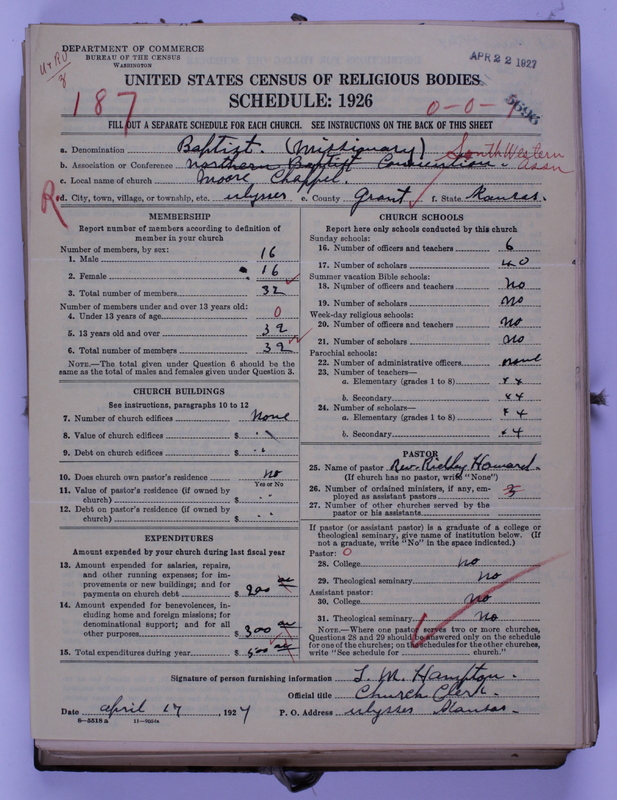 DEPARTMENT OF COMMERCE
BUREAU OF THE CENSUS
WASHINGTON
APR 22 1927
UNITED STATES CENSUS OF RELIGIOUS BODIES
SCHEDULE: 1926
187
0-0-1
FILL OUT A SEPARATE SCHEDULE FOR EACH CHURCH. SEE INSTRUCTIONS ON THE BACK OF THIS SHEET
a. Denomination Baptist. (Missionary)
b. Association or Conference Northern Baptist Convention. South Western Assn
c. Local name of church Moore Chappel.
R
d. City, town, village, or township, etc. Ulysses e. County Grant f. State Kansas.
MEMBERSHIP
Report number of members according to definition of member in your church
Number of members, by sex:
1. Male 16
2. Female 16
3. Total number of members 32
Number of members under and over 13 years old:
4. Under 13 years of age 0
5. 13 years old and over 32
6. Total number of members 32
NOTE.—The total given under Question 6 should be the
same as the total of males and females given under Question 3.
CHURCH BUILDINGS
See instructions, paragraphs 10 to 12
7. Number of church edifices None
8. Value of church edifices $
9. Debt on church edifices $
10. Does church own pastor's residence No
Yes or No
11. Value of pastor's residence (if owned by
church) $
12. Debt on pastor's residence (if owned by
church) $
EXPENDITURES
Amount expended by your church during last fiscal year
13. Amount expended for salaries, repairs,
and other running expenses; for im-
provements or new buildings; and for
payments on church debt $ 200 00
14. Amount expended for benevolences, in-
cluding home and foreign missions; for
denominational support; and for all
other purposes $ 300 00
15. Total expenditures during year $ 500 00
CHURCH SCHOOLS
Report here only schools conducted by this church
Sunday schools:
16. Number of officers and teachers 6
17. Number of scholars 40
Summer vacation Bible schools:
18. Number of officers and teachers No
19. Number of scholars No
Week-day religious schools:
20. Number of officers and teachers No
21. Number of scholars No
Parochial schools:
22. Number of administrative officers None
23. Number of teachers—
a. Elementary (grades 1 to 8)
b. Secondary
24. Number of scholars—
a. Elementary (grades 1 to 8)
b. Secondary
PASTOR
25. Name of pastor Rev. Ridley Howard.
(If church has no pastor, write "None")
26. Number of ordained ministers, if any, em-
ployed as assistant pastors
27. Number of other churches served by the
pastor or his assistants
If pastor (or assistant pastor) is a graduate of a college or
theological seminary, give name of institution below. (If
not a graduate, write "No" in the space indicated.)
Pastor: 0
28. College No
29. Theological seminary No
Assistant pastor:
30. College No
31. Theological seminary No
NOTE.—Where one pastor serves two or more churches,
Questions 28 and 29 should be answered only on the schedule
for one of the churches; on the schedules for the other churches,
write "See schedule for church."
Signature of person furnishing information L. M. Hampton.
Official title Church Clerk.
Date April 17, 1927 P. O. Address Ulysses Kansas.
6-5518 a